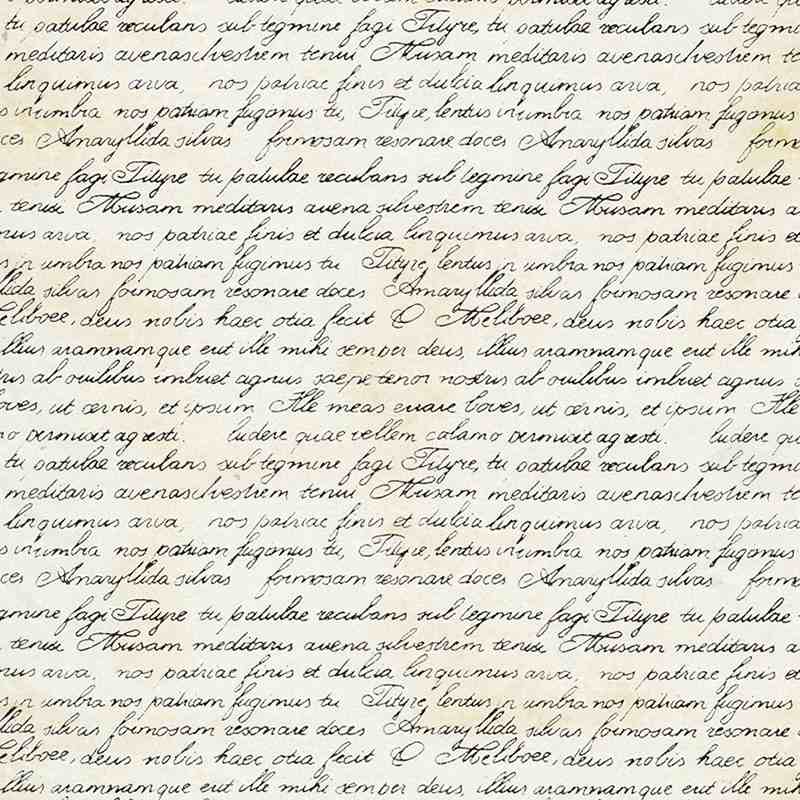 tu patulae recubans sub tegmine fagi Tityre, tu patulae recubans sub tegmi
meditaris avenasilvestrem tenui Musam meditaris avenasilvestrem te
linquimus arva, nos patriae finis et dulcia linquimus arva, nos patria
s in umbra nos patriam fugamus tu, Tityre, lentus in umbra nos patriam fugamus
ces Amaryllida silvas formosam resonare doces Amaryllida silvas formo
gmine fagi Tityre tu patulae recubans sub tegmine fagi Tityre tu patulae
tenui Musam meditaris avena silvestrem tenui Musam meditaris a
mus arva, nos patriae finis et dulcia linquimus arva, nos patriae finis et
s in umbra nos patriam fugimus tu Tityre, lentus in umbra nos patriam fugimus
llida silvas formosam resonare doces Amaryllida silvas formosam resonare
eliboee, deus nobis haec otia fecit O Meliboee, deus nobis haec otia
illius aramnamque erit ille mihi semper deus, illius aramnamque erit ille mih
ris ab ovilibus imbuet agnus saepe tener nostris ab ovilibus imbuet agnus
boves, ut cernis, et ipsum Ille meas errare boves, ut cernis, et ipsum Ille
mo permisit agresti. ludere quae vellem calamo permisit agresti. ludere qu
tu patulae recubans sub tegmine fagi Tityre, tu patulae recubans sub tegmi
meditaris avenasilvestrem tenui Musam meditaris avenasilvestrem te
linquimus arva, nos patriae finis et dulcia linquimus arva, nos patria
s in umbra nos patriam fugamus tu, Tityre, lentus in umbra nos patriam fugamus
ces Amaryllida silvas formosam resonare doces Amaryllida silvas formo
gmine fagi Tityre tu patulae recubans sub tegmine fagi Tityre tu patulae
tenui Musam meditaris avena silvestrem tenui Musam meditaris a
mus arva, nos patriae finis et dulcia linquimus arva, nos patriae finis et
s in umbra nos patriam fugimus tu Tityre, lentus in umbra nos patriam fugimus
llida silvas formosam resonare doces Amaryllida silvas formosam resonare
eliboee, deus nobis haec otia fecit O Meliboee, deus nobis haec otia
illius aramnamque erit ille mihi semper deus, illius aramnamque erit ille mih